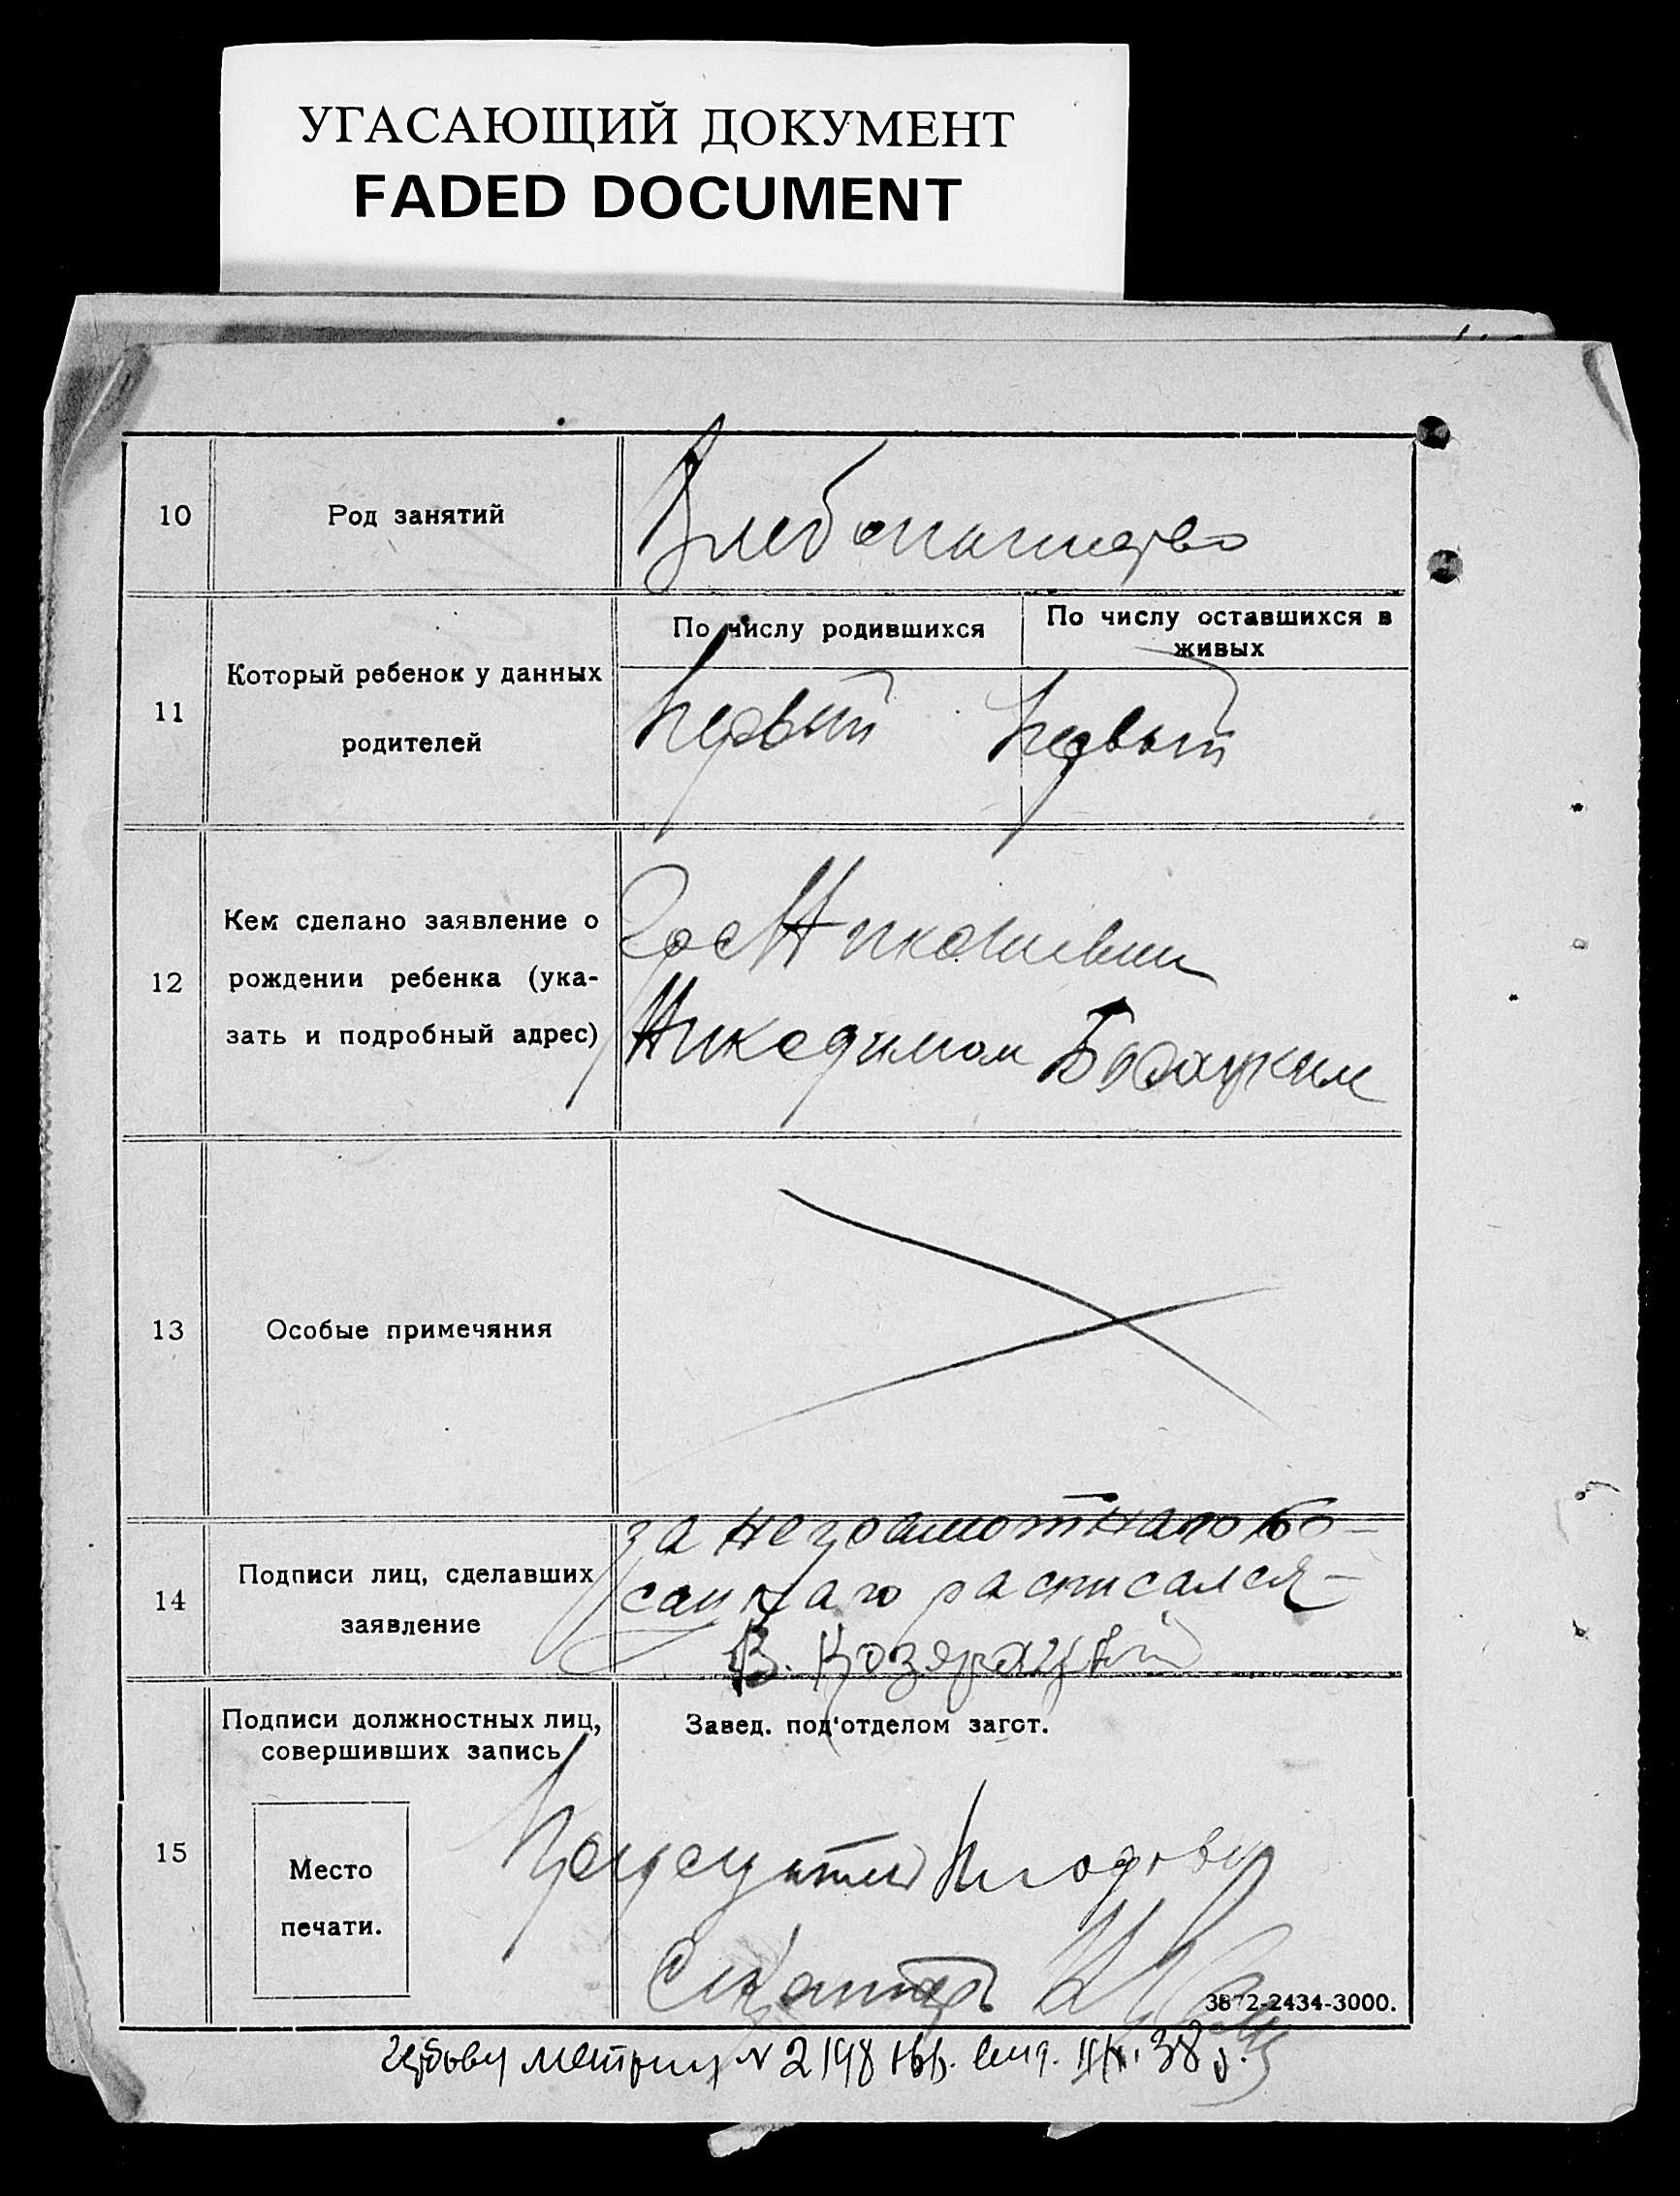 УГАСАЮЩИЙ ДОКУМЕНТ
FADED DOCUMENT
10
Род занятий
Хлебопашество
11
Который ребенок у данных
родителей
По числу родившихся
По числу оставшихся в
живых
первый
первый
12
Кем сделано заявление о
рождении ребенка (ука-
зать и подробный адрес)
Никодимом
13
Особые примечяния
14
Подписи лиц, сделавших
заявление
за неграмотнаго Бо-
сацкаго расписался
В.
15
Подписи должностных лиц,
совершивших запись
Место
печати.
Завед. под'отделом загот.
Секретарь
3872-2434-3000.
метрику № 2198
38